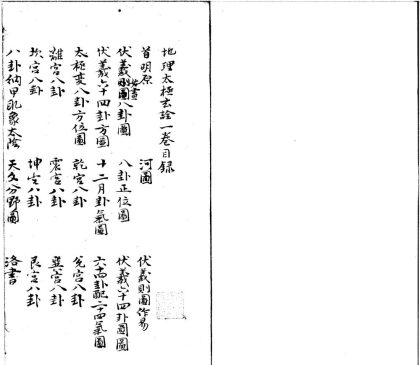 地理太極玄詮一卷目録
首明原 河圖 伏羲則圖作易
伏羲則圖畫八卦圖 八卦正位圖 伏羲六十四卦圓圖
伏羲六十四卦方圖 十二月卦氣圖 六十四卦配二十四氣圖
太極变八卦方位圖 乾宮八卦 兌宮八卦
離宮八卦 震宮八卦 巽宮八卦
坎宮八卦 坤宮八卦 艮宮八卦
八卦納甲配象太陰 天文分野圖 洛書